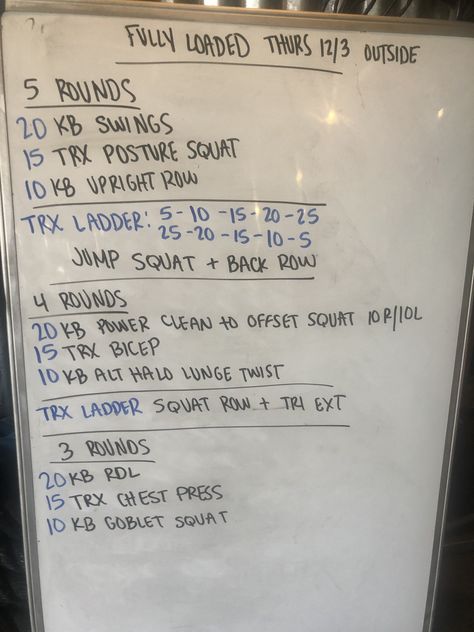 FULLY LOADED THURS 12/3 OUTSIDE
5 ROUNDS
20 KB SWINGS
15 TRX POSTURE SQUAT
10 KB UPRIGHT ROW
TRX LADDER: 5-10-15-20-25
25-20-15-10-5
JUMP SQUAT + BACK ROW
4 ROUNDS
20 KB POWER CLEAN to OFFSET SQUAT 10R/10L
15 TRX BICEP
10 KB ALT HALO LUNGE TWIST
TRX LADDER SQUAT ROW + TRI EXT
3 ROUNDS
20 KB RDL
15 TRX CHEST PRESS
10 KB GOBLET SQUAT